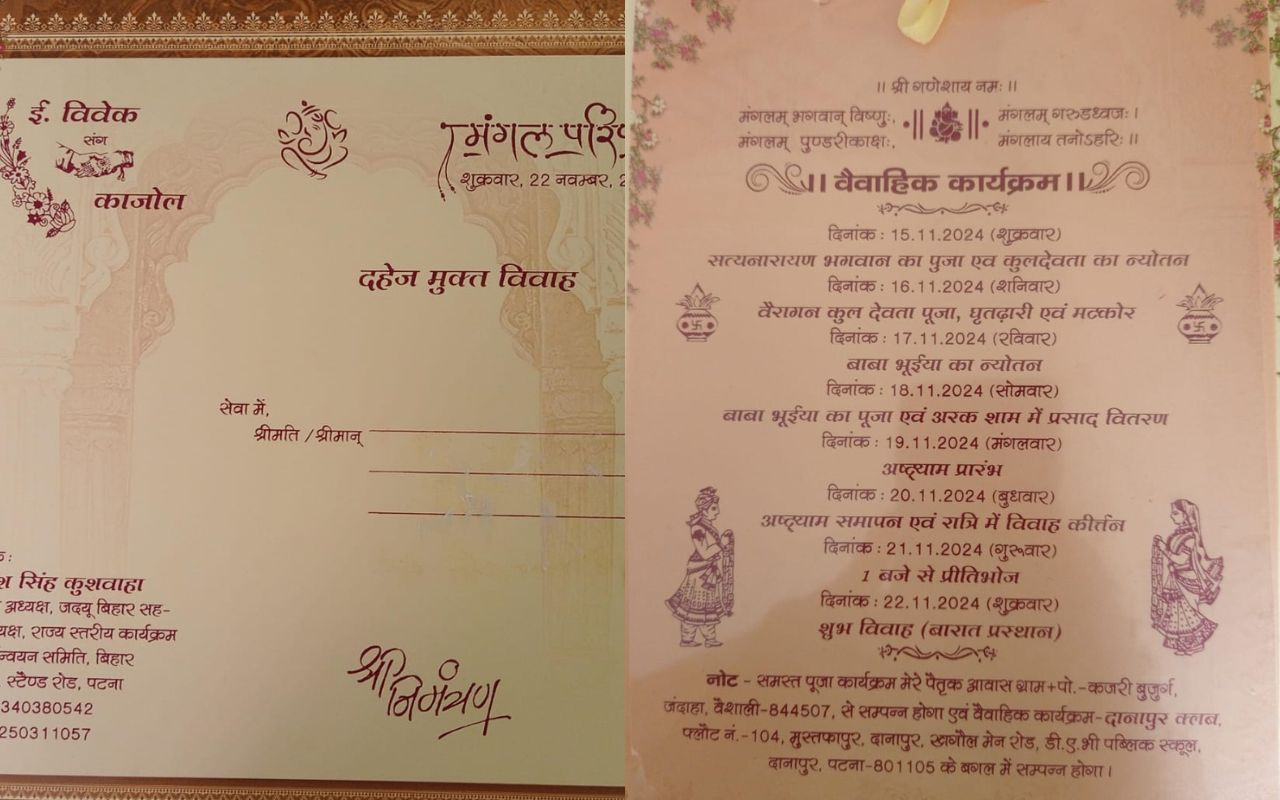 ई. विवेक
संग
काजोल
मंगल परि
शुक्रवार, 22 नवम्बर, 2
दहेज मुक्त विवाह
सेवा में,
श्रीमति / श्रीमान्
सिंह कुशवाहा
अध्यक्ष, जदयू बिहार सह-
राज्य स्तरीय कार्यक्रम
न्वयन समिति, बिहार
स्टैण्ड रोड, पटना
340380542
250311057
श्री निमंत्रण
।। श्री गणेशाय नमः ।।
मंगलम् भगवान् विष्णुः, मंगलम् गरुडध्वजः ।
मंगलम् पुण्डरीकाक्षः, मंगलाय तनोऽहरिः ।।
।। वैवाहिक कार्यक्रम ।।
दिनांक : 15.11.2024 (शुक्रवार)
सत्यनारायण भगवान का पुजा एव कुलदेवता का न्योतन
दिनांक : 16.11.2024 (शनिवार)
वैरागन कुल देवता पूजा, घृतढ़ारी एवं मटकोर
दिनांक : 17.11.2024 (रविवार)
बाबा भूईया का न्योतन
दिनांक : 18.11.2024 (सोमवार)
बाबा भूईया का पूजा एवं अरक शाम में प्रसाद वितरण
दिनांक : 19.11.2024 (मंगलवार)
अष्ट्याम प्रारंभ
दिनांक : 20.11.2024 (बुधवार)
अष्ट्याम समापन एवं रात्रि में विवाह कीर्त्तन
दिनांक : 21.11.2024 (गुरूवार)
1 बजे से प्रीतिभोज
दिनांक : 22.11.2024 (शुक्रवार)
शुभ विवाह (बारात प्रस्थान)
नोट - समस्त पूजा कार्यक्रम मेरे पैतृक आवास ग्राम+पो.-कजरी बुजुर्ग,
जंदाहा, वैशाली-844507, से सम्पन्न होगा एवं वैवाहिक कार्यक्रम-दानापुर क्लब,
प्लौट नं.-104, मुस्तफापुर, दानापुर, खगौल मेन रोड, डी.ए.भी पब्लिक स्कूल,
दानापुर, पटना-801105 के बगल में सम्पन्न होगा।